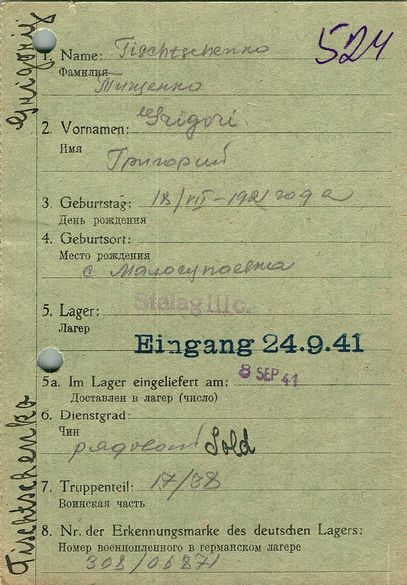 Grigorij
524
1. Name: Tischtschenko
Фамилия
Тищенко
2. Vornamen: Grigori
Имя
Григорий
3. Geburtstag:
День рождения
4. Geburtsort:
Место рождения
с
5. Lager: Stalag III c.
Лагер
Eingang 24.9.41
5a. Im Lager eingeliefert am: 8 SEP 41
Доставлен в лагер (число)
6. Dienstgrad:
Чин
рядовой Sold
7. Truppenteil: 17/38
Воинская часть
8. Nr. der Erkennungsmarke des deutschen Lagers:
Номер военнопленного в германском лагере
308/06871
Tischtschenko